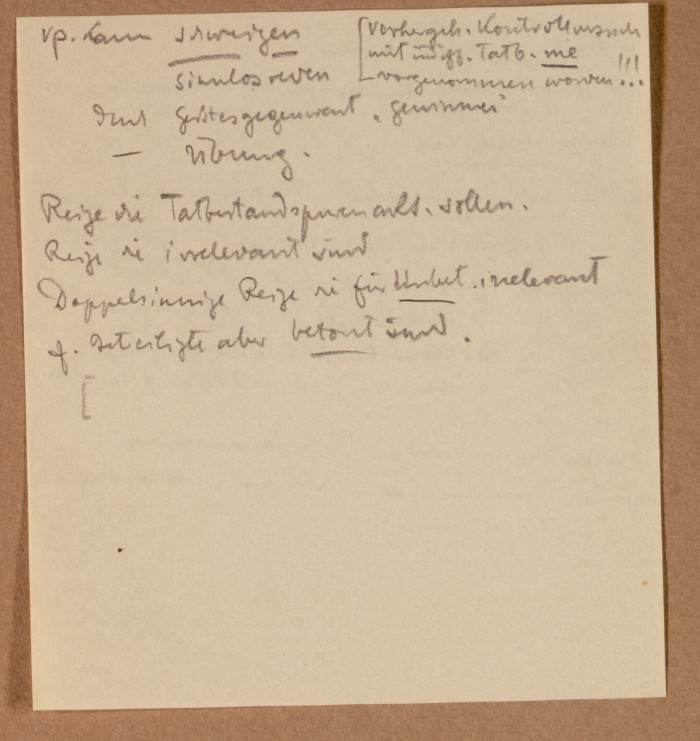 Vp. kann schweigen
sinnlos reden
[Vorhergeh. Kontrollversuch
mit Tatb. nie
vorgenommen worden!!!
Geistesgegenwart „gewinnen"
— Übung.
Reize die Tatbestandspuren sollen.
Reize die irrelevant sind
Doppelsinnige Reize die für Unbet. irrelevant
f. Beteiligte aber betont sind.
[